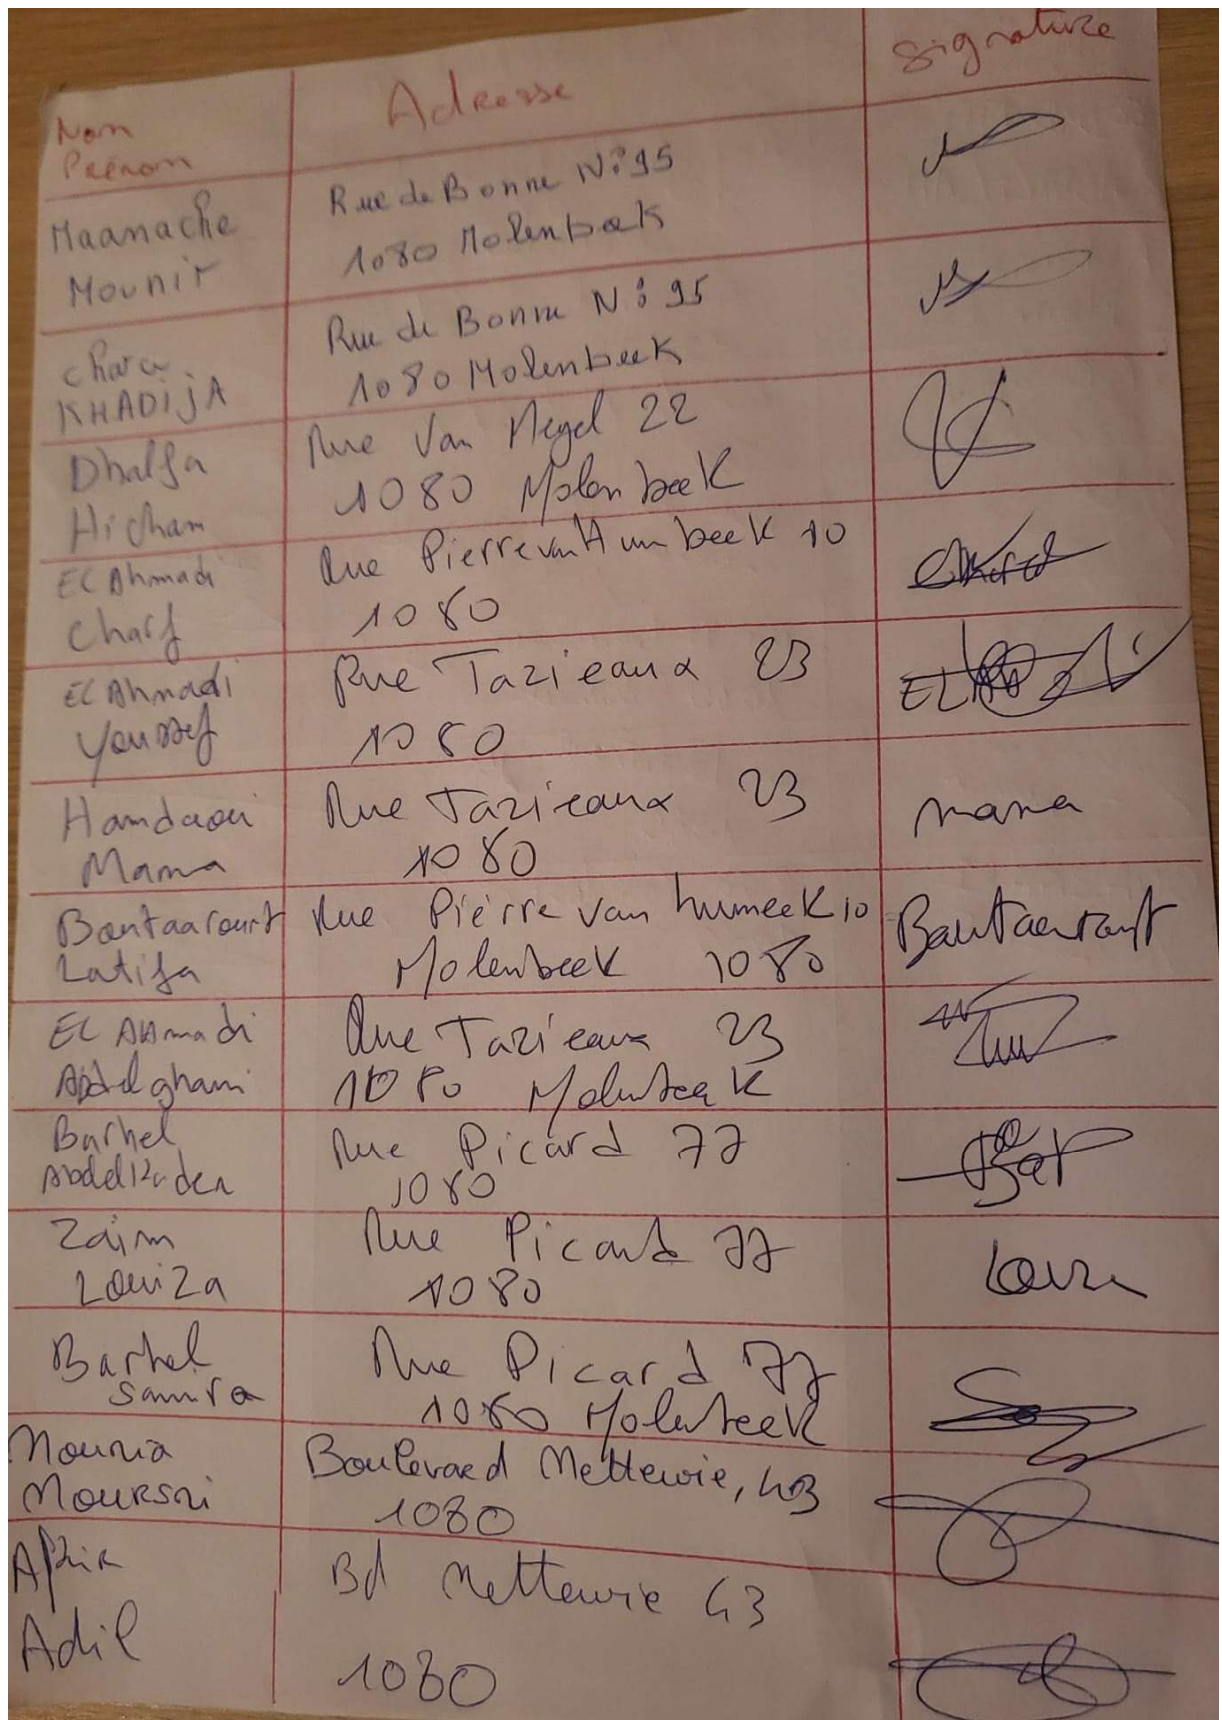 Nom
Prénom
Adresse
Signature
Maanache
Mounir
Rue de Bonne N° 95
1080 Molenbeek
Chara
KHADIJA
Rue de Bonne N° 95
1080 Molenbeek
Dhalfa
Hicham
Rue Van Megel 22
1080 Molenbeek
EL Ahmadi
Charf
Rue Pierre van Humbeek 10
1080
EL Ahmadi
Youssef
Rue Tazieaux 23
1080
Hamdaoui
Mama
Rue Tazieaux 23
1080
mama
Boutaarourt
Latifa
Rue Pierre van humeek 10
Molenbeek 1080
EL Ahmadi
Abdelghani
Rue Tazieaux 23
1080 Molenbeek
Barhel
Rue Picard 77
1080
Zaim
Louiza
Rue Picard 77
1080
Barhel
Samira
Rue Picard 77
1080 Molenbeek
Nouria
Moursni
Boulevard Mettewie, 43
1080
Adil
Bd Mettewie 43
1080